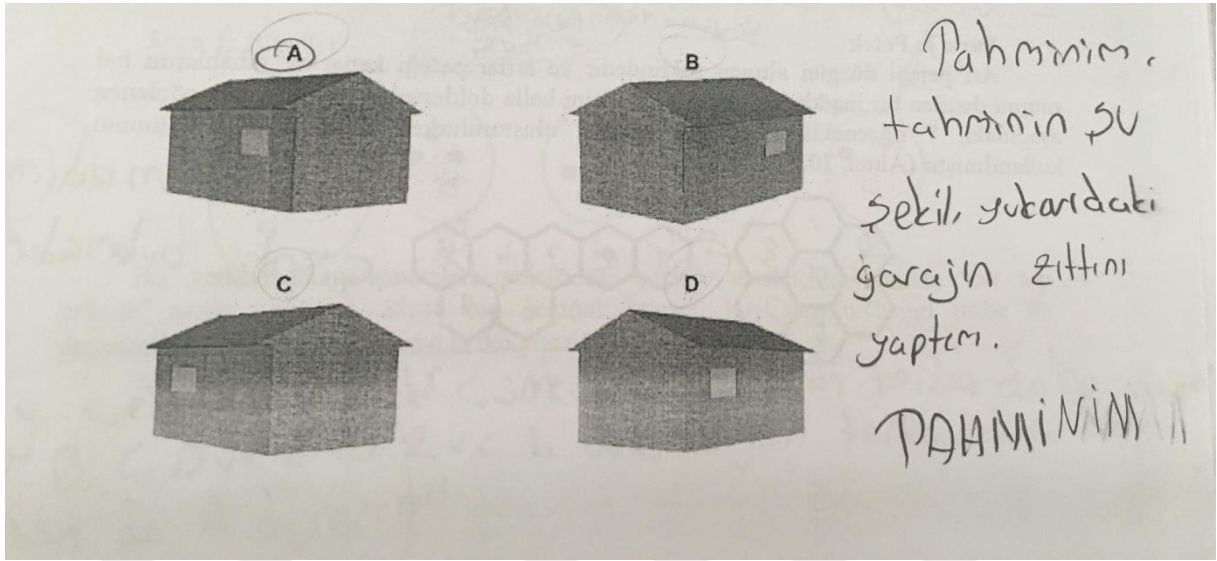 A
B
C
D
Tahminim.
tahminin şu
şekil, yukardaki
garajın zıttını
yaptım.
TAHMİNİM